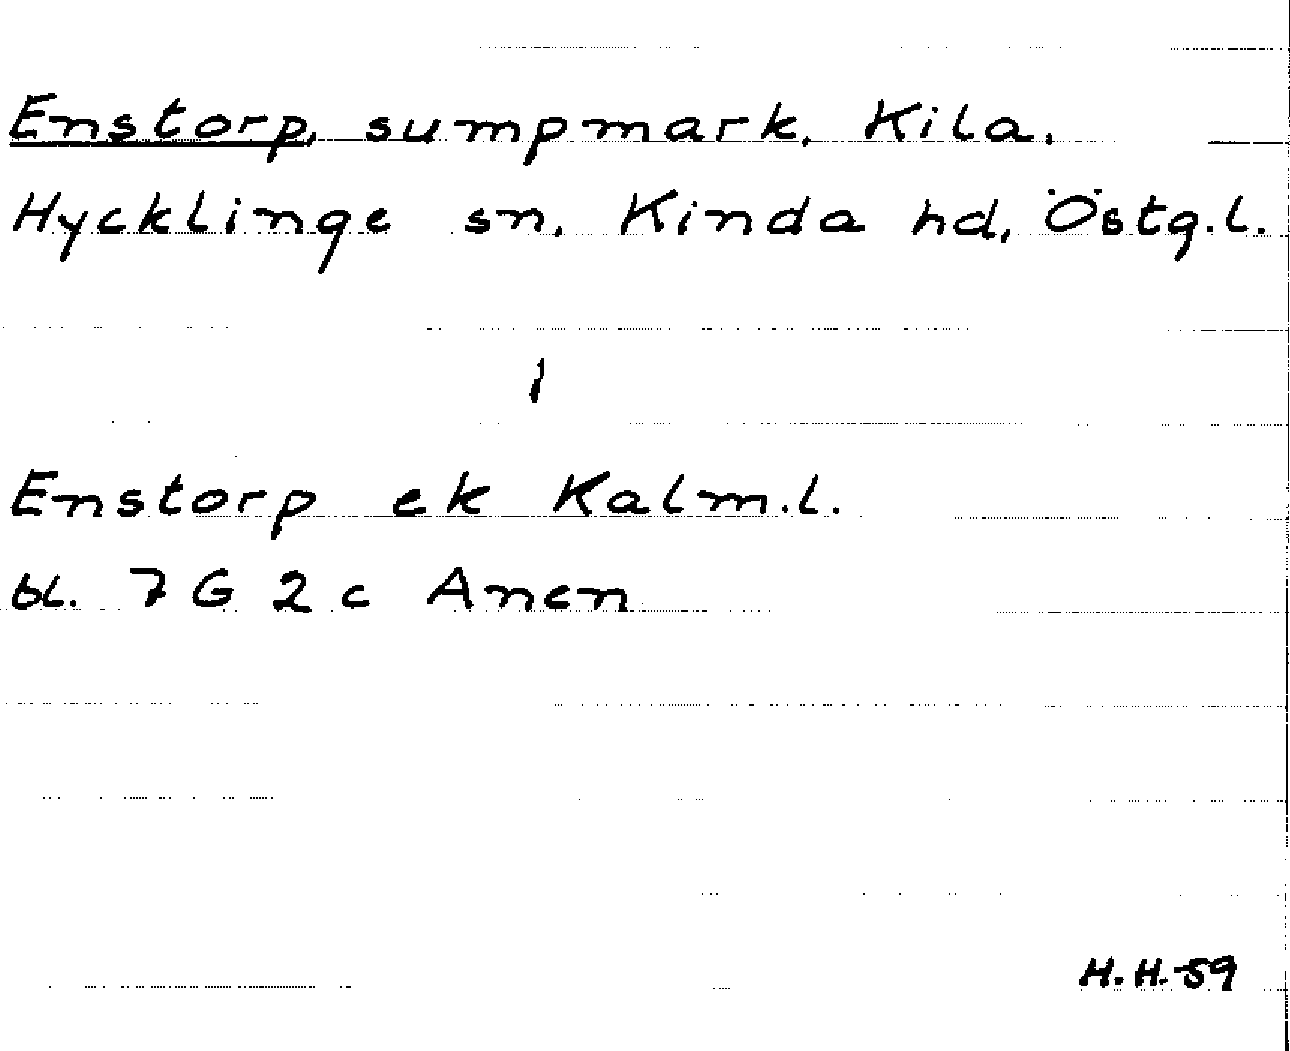 Enstorp, sumpmark, Kila.
Hycklinge sn, Kinda hd, Östg.l.
Enstorp ek Kalm.l.
bl. 7 G 2 c Anen
H.H.-59